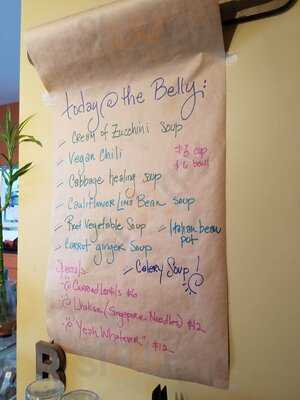 today @ the Belly:
Cream of Zucchini Soup
Vegan Chili
$3 cup
$6 bowl
Cabbage healing soup
Cauliflower Lima Bean soup
Red Vegetable Soup
Italian bean pot
Carrot ginger soup
Celery Soup!
Specials
Curried Lentils $6
(Singapore Noodles) $12
"Yeah Whatever" $12
R